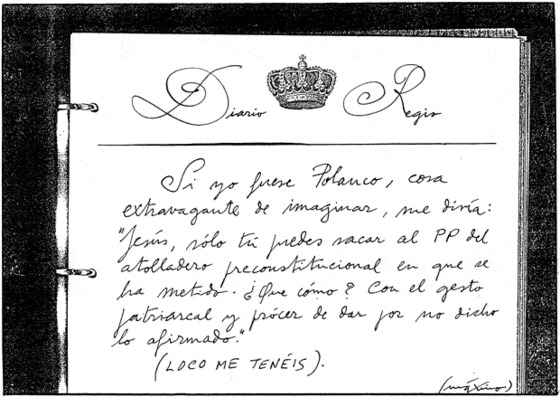 Diario Regis
Si yo fuese Polanco, cosa
extravagante de imaginar, me diría:
"Jesús, sólo tú puedes sacar al PP del
atolladero preconstitucional en que se
ha metido. ¿Que cómo? Con el gesto
patriarcal y prócer de dar por no dicho
lo afirmado."
(LOCO ME TENÉIS).
(máximo)